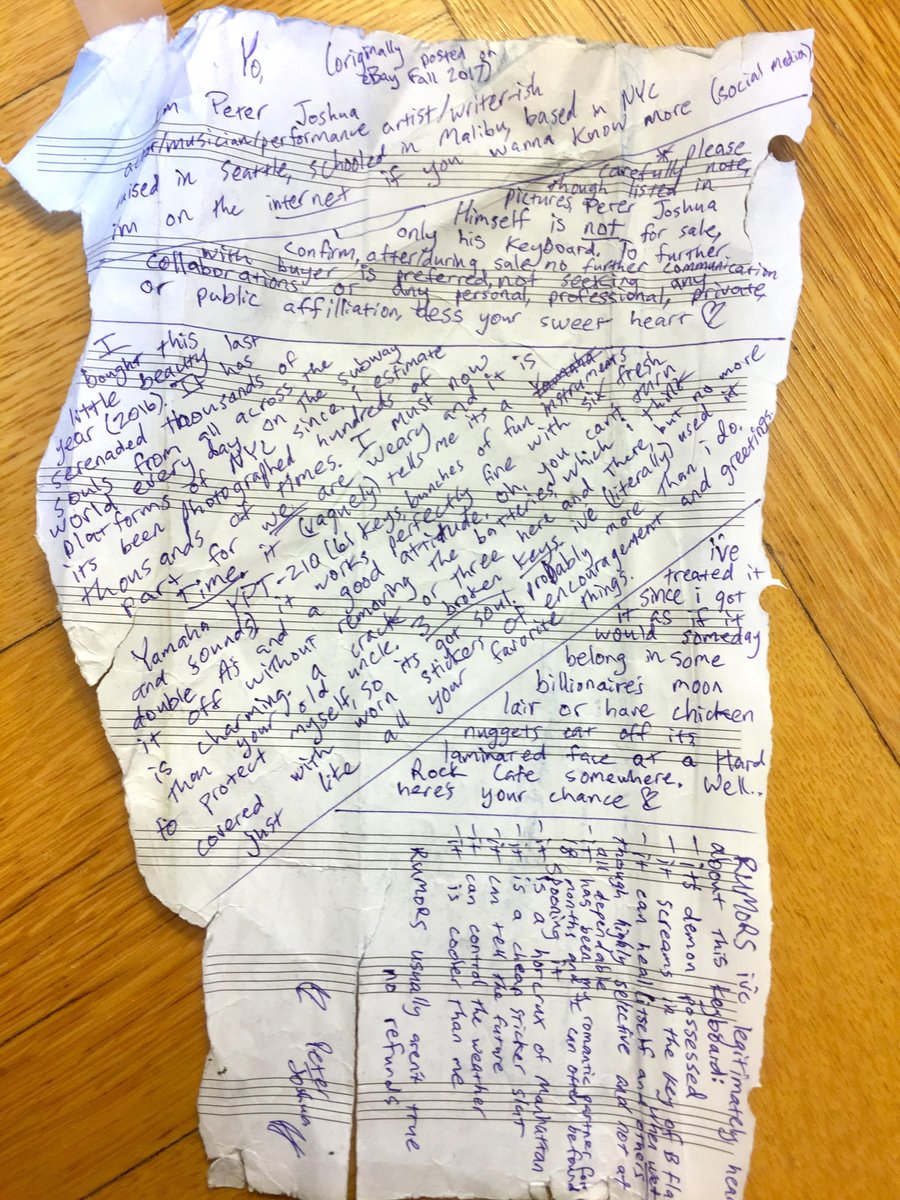 Yo, (originally posted on
eBay Fall 2017)
im Peter Joshua
actor/musician/performance artist/writer-ish
raised in Seattle, schooled in Malibu, based in NYC
im on the internet if you wanna know more (social media)
* please
carefully note,
though listed in
pictures, Peter Joshua
Himself is not for sale,
only his keyboard. To further
confirm, after/during sale no further communication
with buyer is preferred, not seeking any
collaborations or any personal, professional, private,
or public affilliation, bless your sweet heart
I bought this last
little beauty
year (2016). It has
serenaded thousands of
souls from all across the
world every day on the subway
platforms of NYC since. i estimate
it's been photographed hundreds of
thousands of times. I must now
part for we are weary and it is
Time. it (vaguely) tells me its a
Yamaha YPT-210 (61 keys, bunches of fun instruments
and sounds) it works perfectly fine with six fresh
double As and a good attitude. oh, you can't turn
it off without removing the batteries, which i think
is charming. a crack or three here and there but no more
than your old uncle. 3 broken keys. ive (literally) used it
to protect myself, so its got soul. probably more than i do.
covered with worn stickers of encouragement and greetings.
just like all your favorite things.
ive
treated it
since i got
it as if it
would someday
belong in some
billionaire's moon
lair or have chicken
nuggets eat off its
laminated face at a Hard
Rock Cafe somewhere. Well..
here's your chance
RUMORS ive legitimately hea
about this keyboard:
- its demon possessed
- it screams in the key of B fla
when wet
- it can heal itself and others
though highly selective and not at
all dependable
- it has been my romantic partner for
months and I can often be found
spooning it
- it is a horcrux of Manhattan
- it is a cheap sticker slut
- it can tell the future
- it can control the weather
- it is cooler than me
RUMORS usually aren't true
no refunds
Peter
Joshua